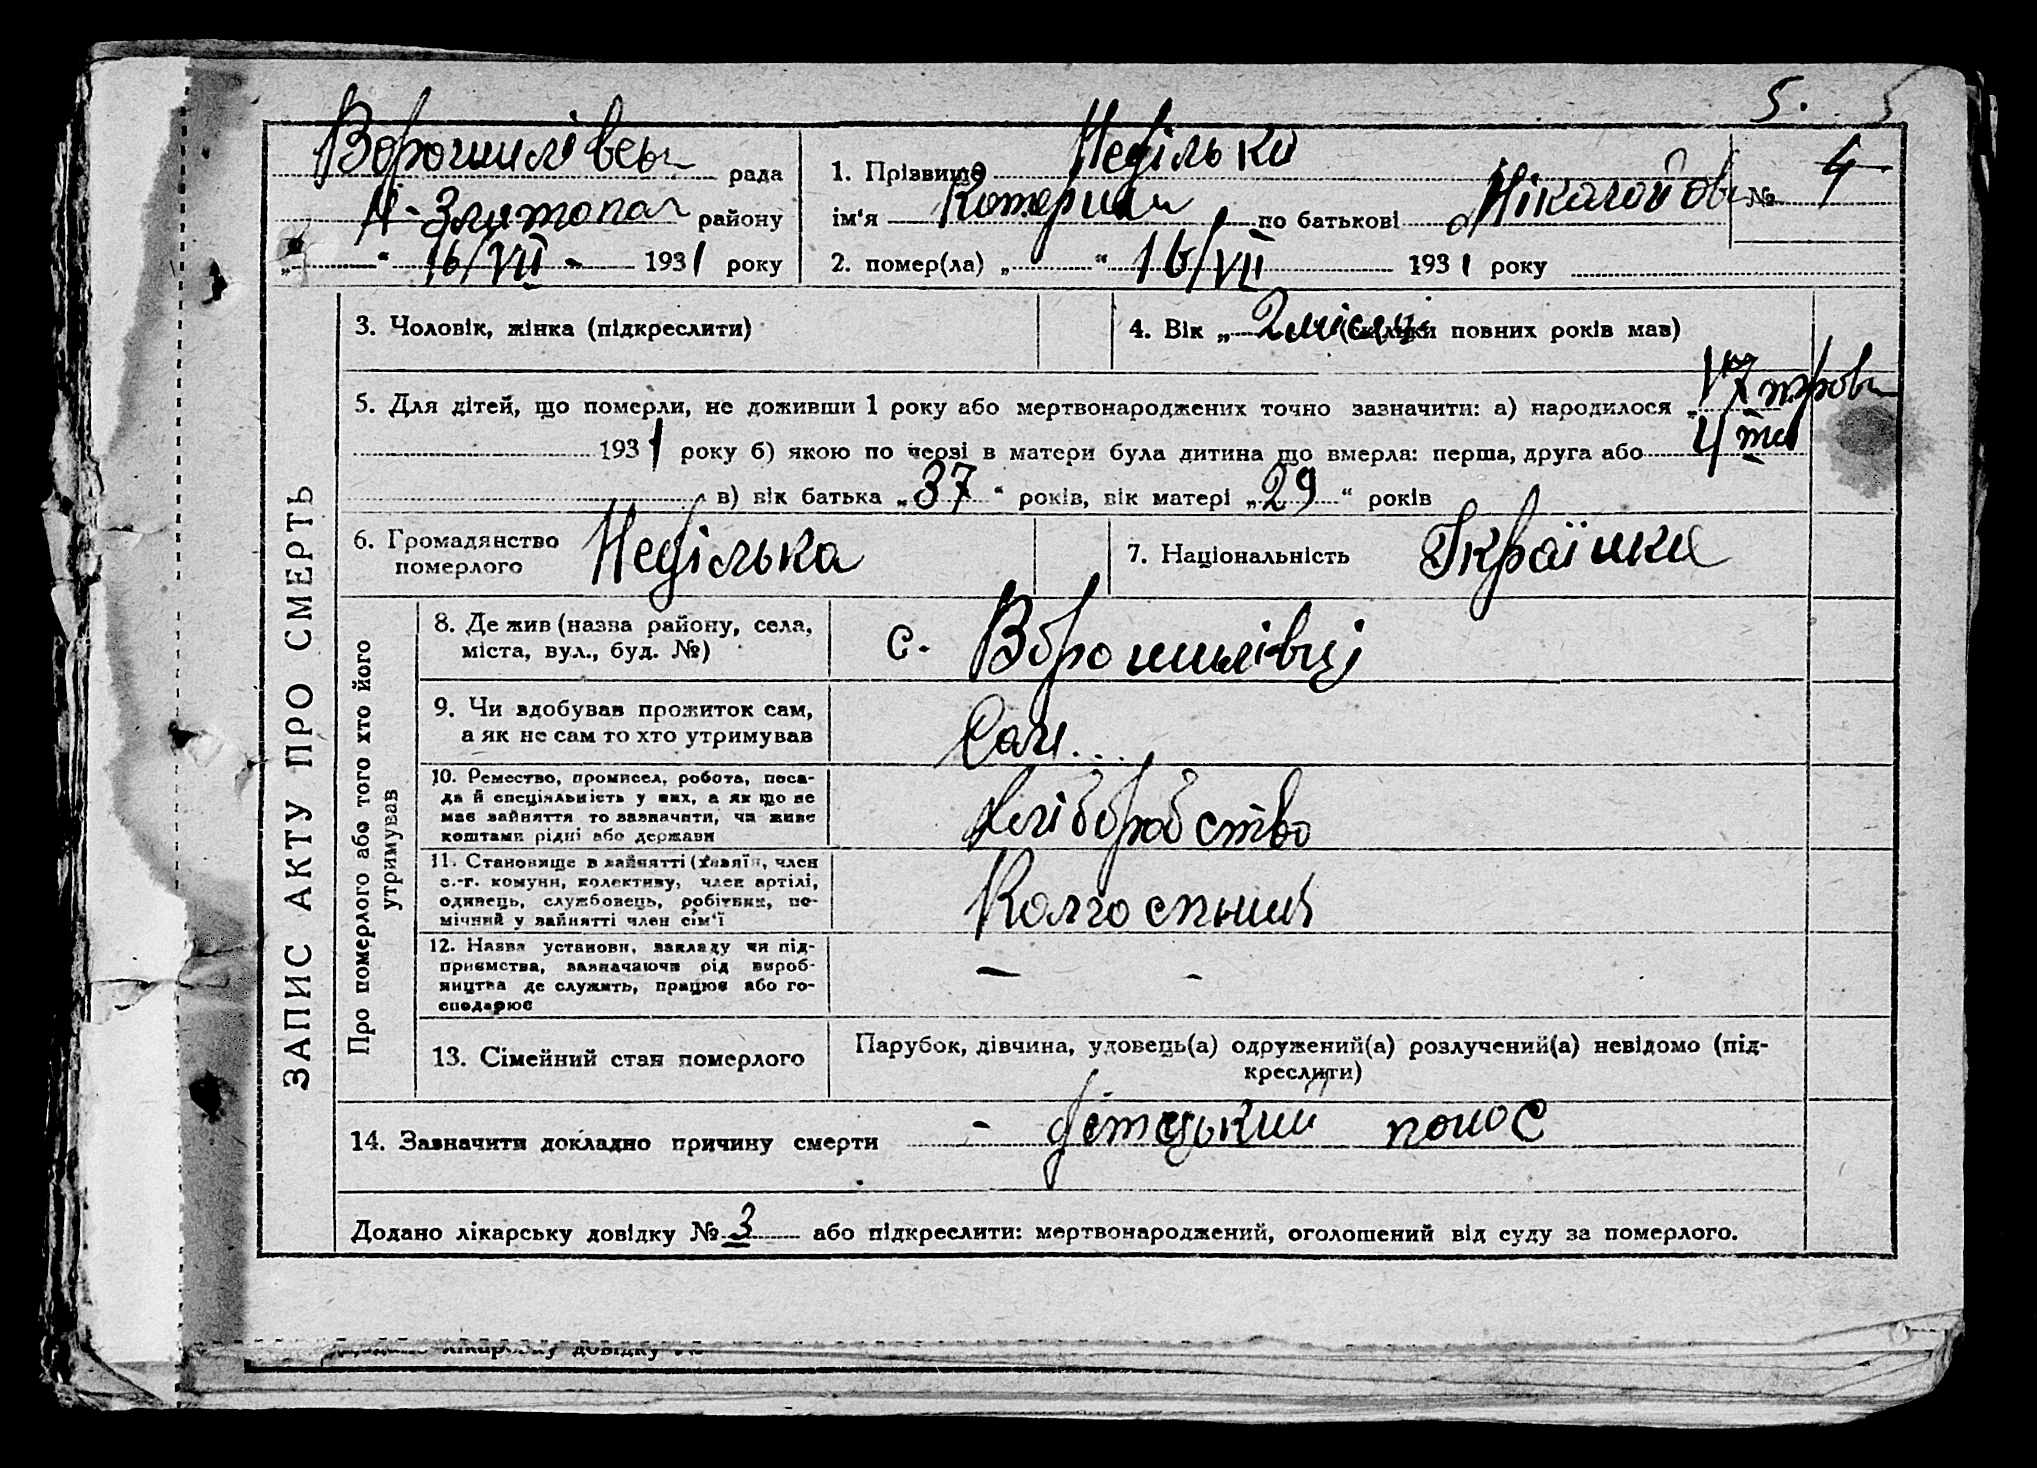 5. 5
Ворошилівськ рада
Н-Златопол району
„ “ 16/VII - 1931 року
1. Прізвище Неділько
№ 4
ім'я Котерина по батькові Ніколойовн
2. помер(ла) „ “ 16/VII 1931 року
3. Чоловік, жінка (підкреслити)
4. Вік „ 2 місяці (скільки повних років мав)
5. Для дітей, що померли, не доживши 1 року або мертвонароджених точно зазначити: а) народилося „
1931 року б) якою по черзі в матери була дитина що вмерла: перша, друга або 4 та
в) вік батька „ 37 “ років, вік матері „ 29 “ років
6. Громадянство
померлого Неділька
7. Національність Українка
ЗАПИС АКТУ ПРО СМЕРТЬ
Про померлого або того хто його
утримував
8. Де жив (назва району, села,
міста, вул., буд. №)
с. Ворошилівці
9. Чи вдобував прожиток сам,
а як не сам то хто утримував
Сам...
10. Ремество, промисел, робота, поса-
да й спеціяльність у них, а як що не
має зайняття то зазначити, чи живе
коштами рідні або держави
Хліборобство
11. Становище в зайнятті (хазяїн, член
с.-г. комуни, колективу, член артілі,
одинець, службовець, робітник, по-
мічний у зайнятті член сім'ї
Колгоспник
12. Назва установи, закладу чи під-
приємства, зазначаючи рід вироб-
ництва де служить, працює або го-
сподарює
— -
13. Сімейний стан померлого
Парубок, дівчина, удовець(а) одружений(а) розлучений(а) невідомо (під-
креслити)
14. Зазначити докладно причину смерти - дітський понос
Додано лікарську довідку № 3 або підкреслити: мертвонароджений, оголошений від суду за померлого.
лікарську довідку №